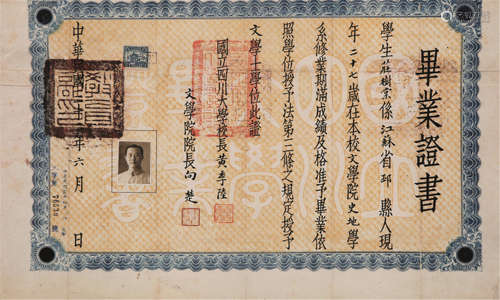 畢業證書
學生莊樹棠係江蘇省邳縣人現
年二十七歲在本校文學院史地學
系修業期滿成績及格准予畢業依
照學位授予法第三條之規定授予
文學士學位此證
國立四川大學校長黃季陸
文學院院長向楚
中華民國年六月日